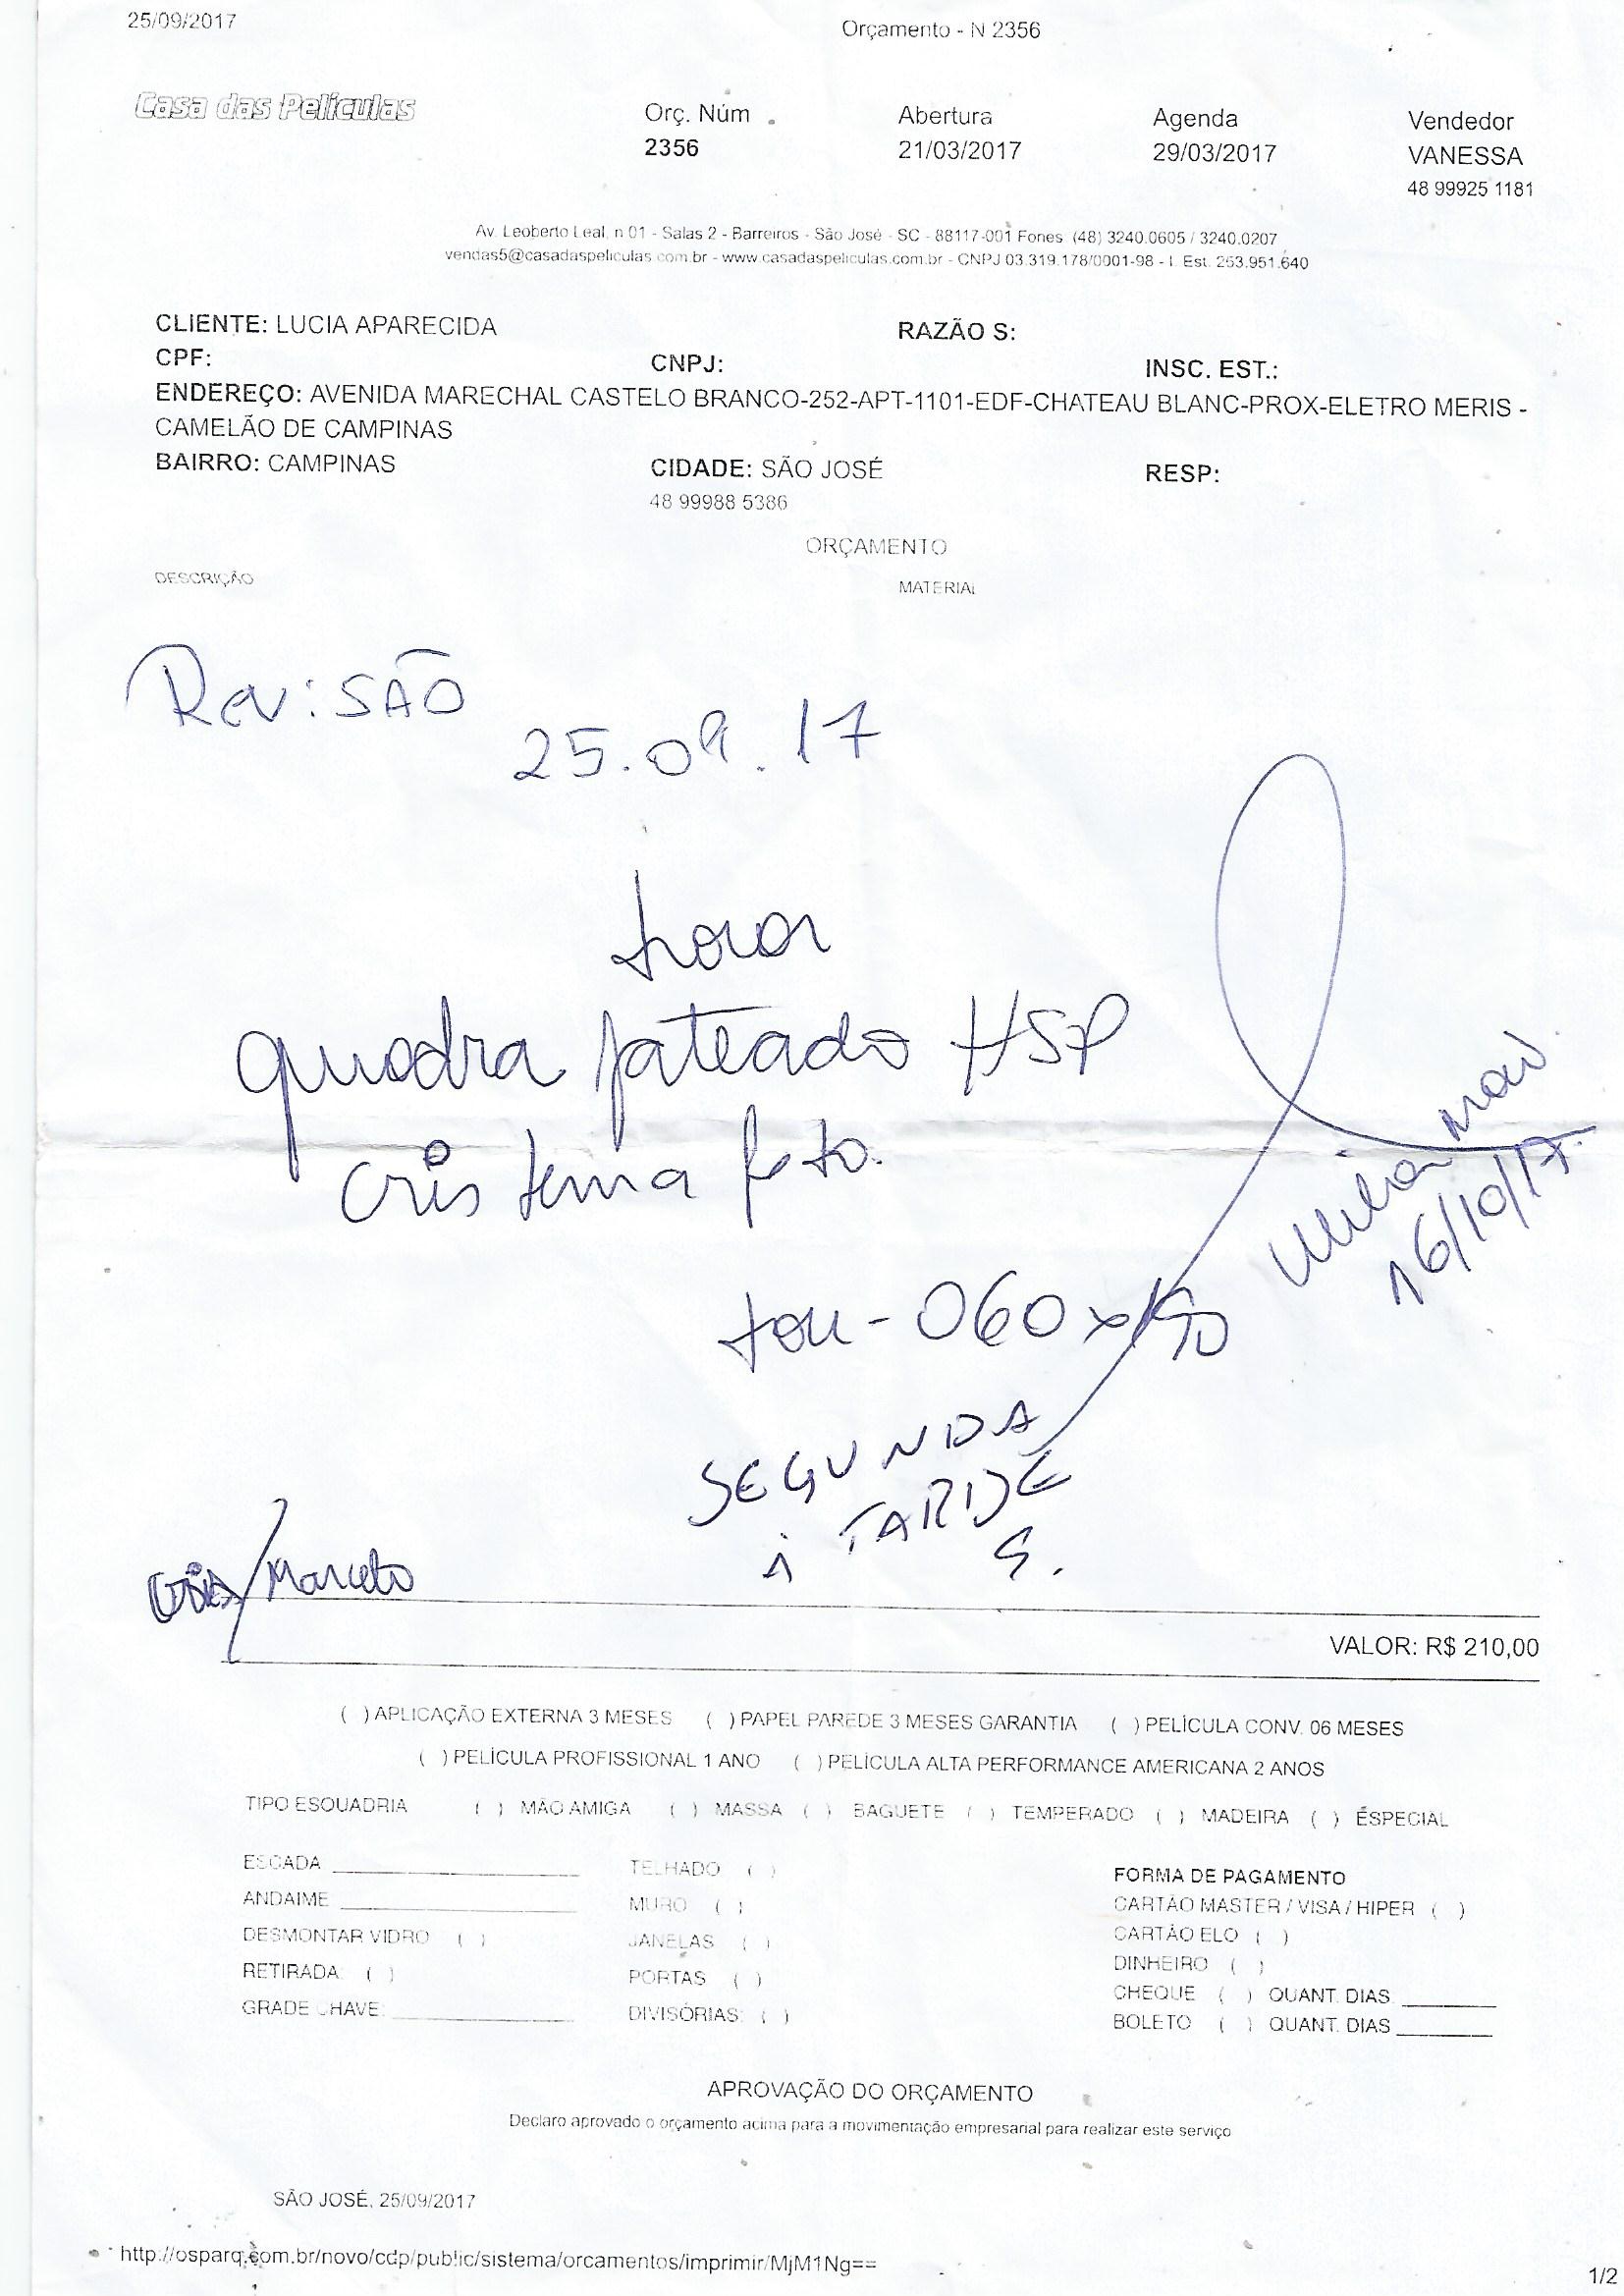 25/09/2017
Orçamento - N 2356
Casa das Películas
Orç. Núm
2356
Abertura
21/03/2017
Agenda
29/03/2017
Vendedor
VANESSA
48 99925 1181
Av. Leoberto Leal, n 01 - Salas 2 - Barreiros - São José - SC - 88117-001 Fones (48) 3240.0605 / 3240.0207
vendas5@casadaspeliculas.com.br - www.casadaspeliculas.com.br - CNPJ 03.319.178/0001-98 - I. Est. 253.951.640
CLIENTE: LUCIA APARECIDA RAZÃO S:
CPF: CNPJ: INSC. EST.:
ENDEREÇO: AVENIDA MARECHAL CASTELO BRANCO-252-APT-1101-EDF-CHATEAU BLANC-PROX-ELETRO MERIS -
CAMELÃO DE CAMPINAS
BAIRRO: CAMPINAS CIDADE: SÃO JOSÉ RESP:
48 99988 5386
ORÇAMENTO
DESCRIÇÃO MATERIAL
REVISÃO
25.09.17
quadra jateado HSP
cris tema foto.
16/10/17
060x
SEGUNDA
A TARDE
Cris/Marcelo
VALOR: R$ 210,00
( ) APLICAÇÃO EXTERNA 3 MESES ( ) PAPEL PAREDE 3 MESES GARANTIA ( ) PELÍCULA CONV. 06 MESES
( ) PELÍCULA PROFISSIONAL 1 ANO ( ) PELÍCULA ALTA PERFORMANCE AMERICANA 2 ANOS
TIPO ESQUADRIA ( ) MÃO AMIGA ( ) MASSA ( ) BAGUETE ( ) TEMPERADO ( ) MADEIRA ( ) ESPECIAL
ESCADA ____ TELHADO ( ) FORMA DE PAGAMENTO
ANDAIME ____ MURO ( ) CARTÃO MASTER / VISA / HIPER ( )
DESMONTAR VIDRO ( ) JANELAS ( ) CARTÃO ELO ( )
RETIRADA: ( ) PORTAS ( ) DINHEIRO ( )
GRADE CHAVE: ____ DIVISÓRIAS: ( ) CHEQUE ( ) QUANT. DIAS ____
BOLETO ( ) QUANT. DIAS ____
APROVAÇÃO DO ORÇAMENTO
Declaro aprovado o orçamento acima para a movimentação empresarial para realizar este serviço
SÃO JOSÉ, 25/09/2017
http://osparq.com.br/novo/cdp/public/sistema/orcamentos/imprimir/MjM1Ng==
1/2